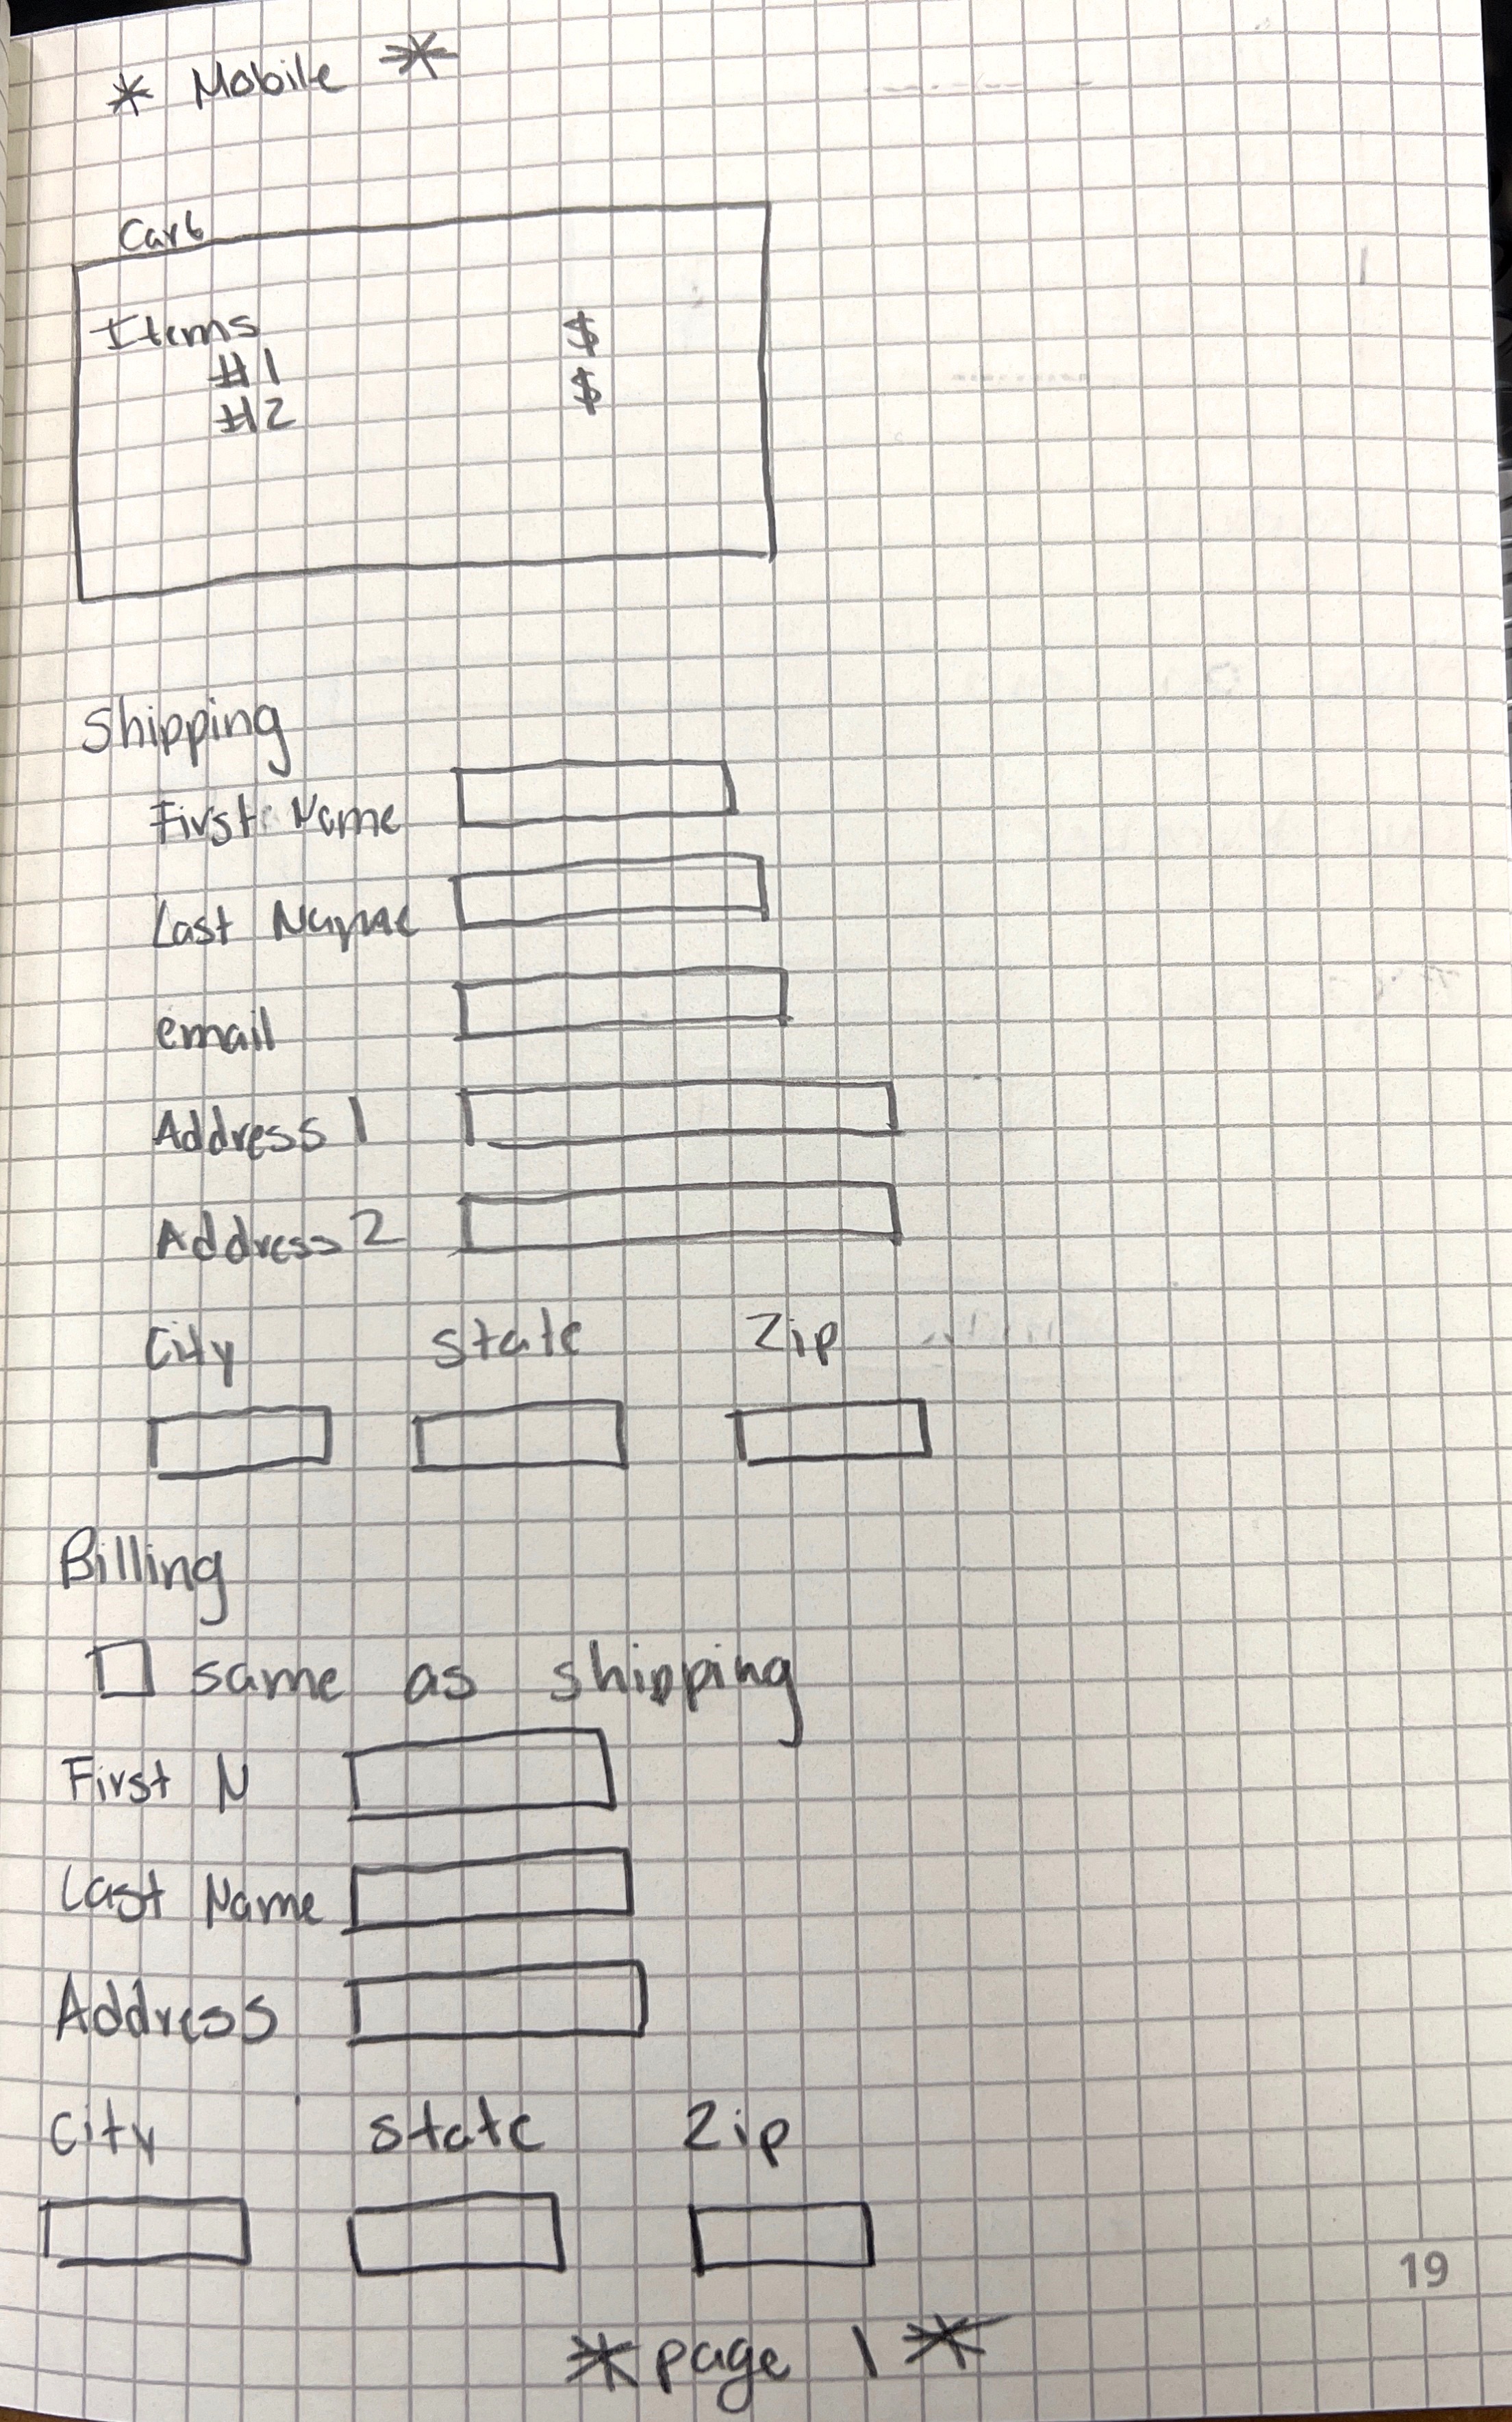 * Mobile *
Cart
Items $
#1 $
#2
Shipping
First Name
Last Name
email
Address 1
Address 2
City state Zip
Billing
same as shipping
First N
Last Name
Address
City state Zip
19
*page 1*